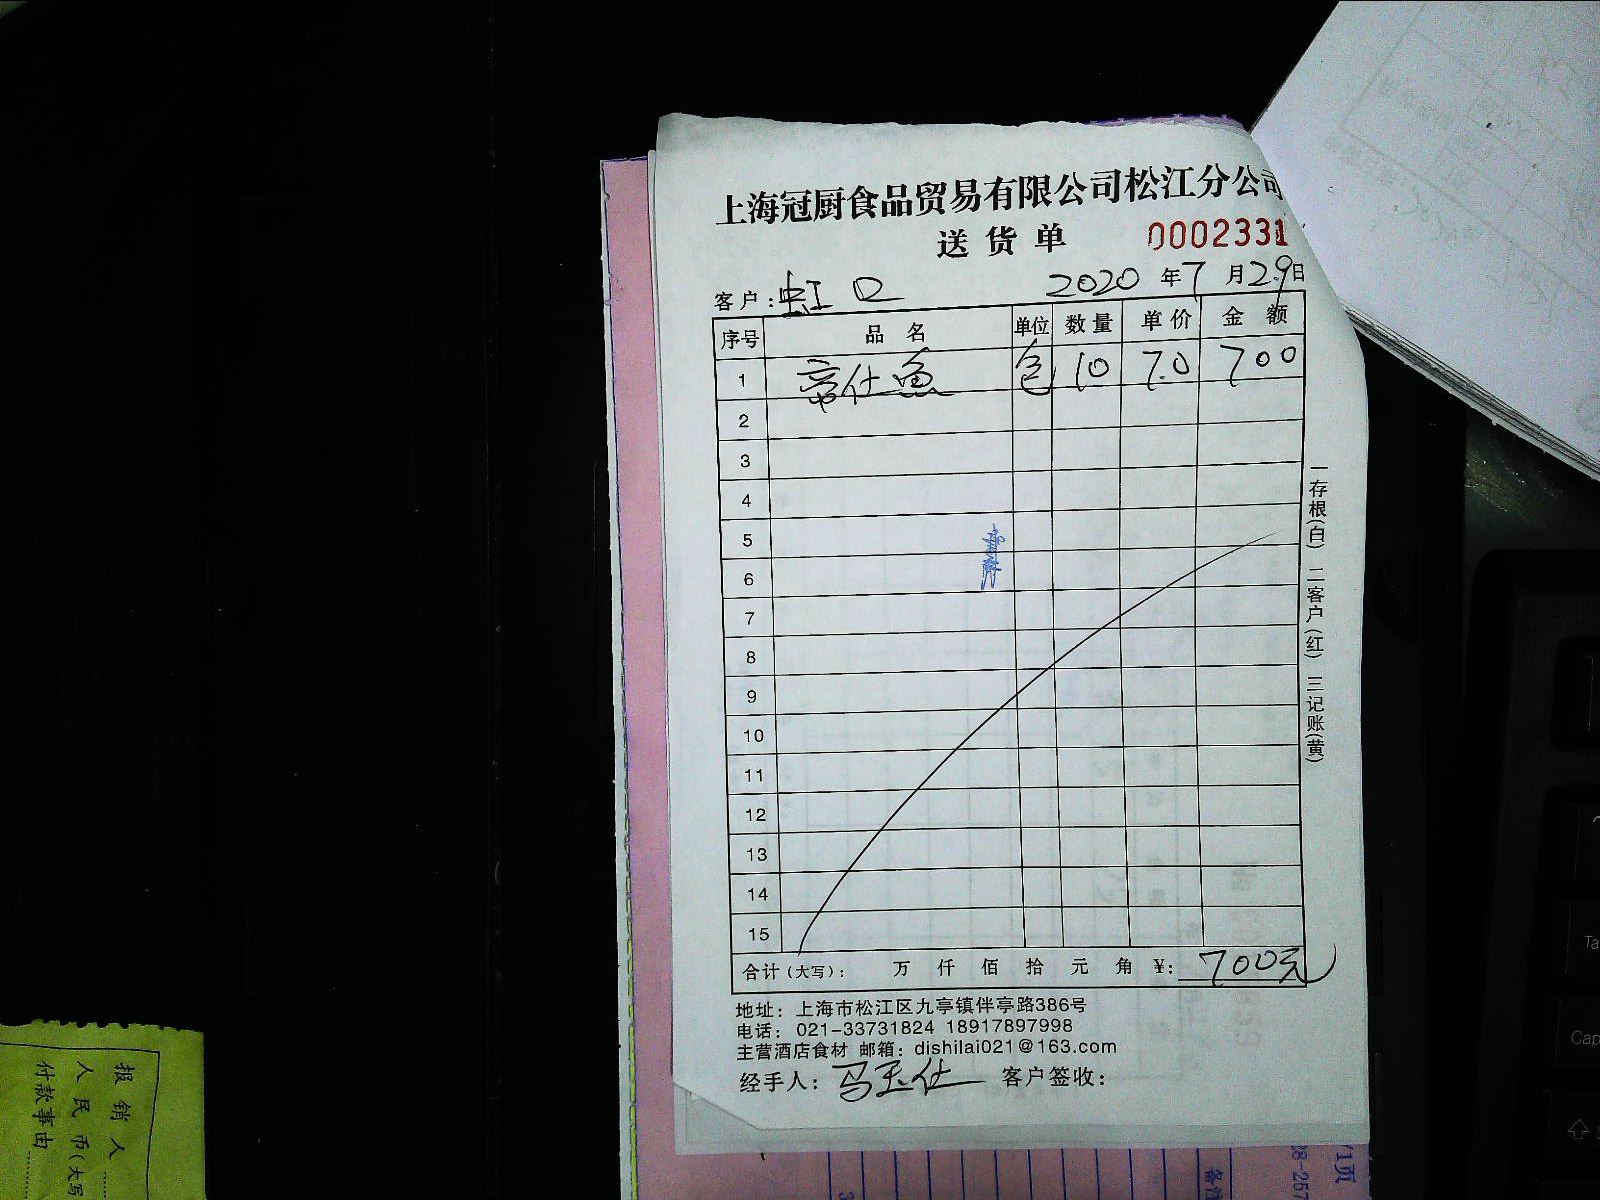 上海冠厨食品贸易有限公司松江分公司
送货单 0002331
客户：虹口 2020年7月29日
序号 品名 单位 数量 单价 金额
1 帝仕鱼 包 10 70 700
2
3
4
5
6
7
8
9
10
11
12
13
14
15
合计（大写）： 万 仟 佰 拾 元 角 ¥：700元
地址：上海市松江区九亭镇伴亭路386号
电话：021-33731824 18917897998
主营酒店食材 邮箱：dishilai021@163.com
经手人：马玉仕 客户签收：
一存根（白） 二客户（红） 三记账（黄）
报销人
人民币（大写
付款事由
/1页
备注
Ta
Cap